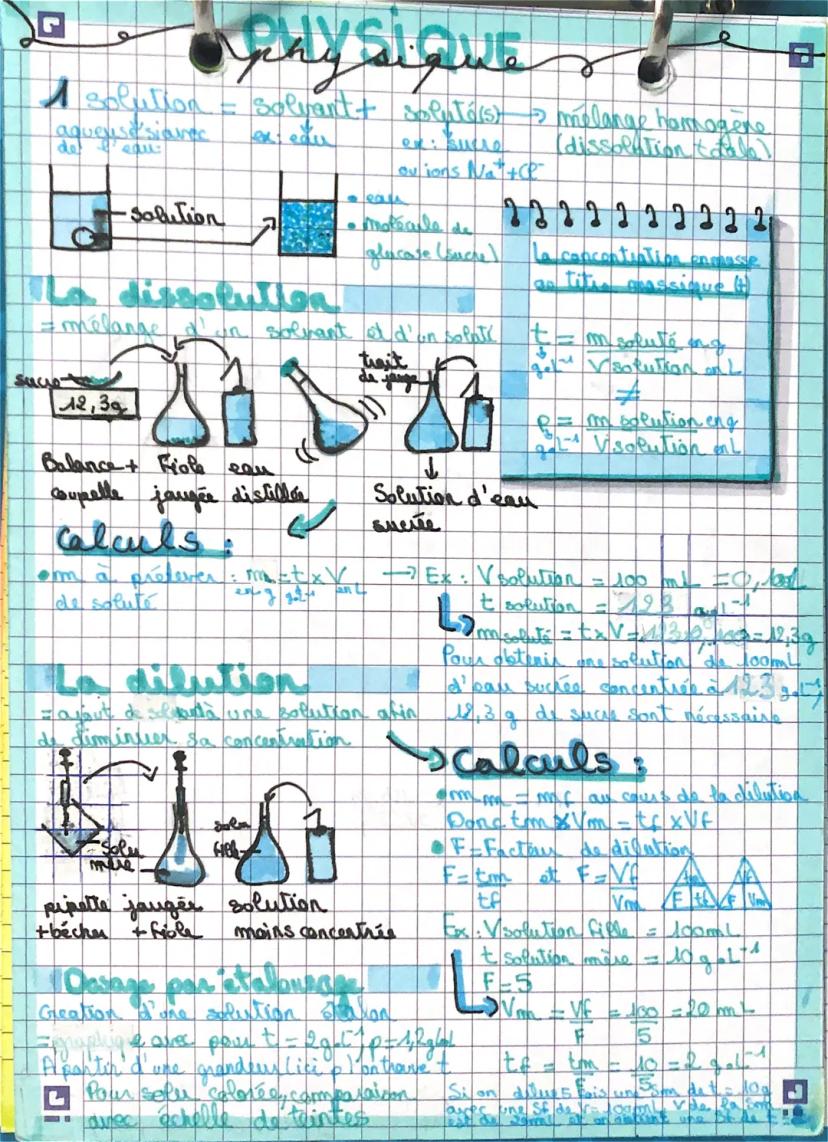 PHYSIQUE
physique
1 solution = solvant + soluté(s) → mélange homogène
aqueuse si avec de l'eau
ex: eau
ex: sucre
ou ions Na⁺ + Cl⁻
(dissolution totale)
solution
• eau
• molécule de
glucose (sucre)
La concentration en masse
ou titre massique (t)
t = m soluté en g
g.L⁻¹ V solution en L
≠
ρ = m solution en g
g.L⁻¹ V solution en L
La dissolution
= mélange d'un solvant et d'un soluté
sucre
12,3g
trait
de jauge
Balance + Fiole eau
coupelle jaugée distillée
Solution d'eau
sucrée
Calculs :
• m à prélever : m = t x V
de soluté en g g.L⁻¹ en L
→ Ex : V solution = 100 mL = 0,100L
t solution = 123 g.L⁻¹
m soluté = t x V = 123 x 0,100 = 12,3g
Pour obtenir une solution de 100mL
d'eau sucrée concentrée à 123 g.L⁻¹,
12,3 g de sucre sont nécessaire
La dilution
= ajout de solvant à une solution afin
de diminuer sa concentration
Solu
mère
solu
fille
pipette jaugée solution
+ bécher + fiole moins concentrée
Calculs :
• mm = mf au cours de la dilution
Donc tm x Vm = tf x Vf
• F = Facteur de dilution
F = tm et F = Vf
tf Vm
tm
F tf
Vf
F Vm
Ex : V solution fille = 100mL
t solution mère = 10 g.L⁻¹
F = 5
Vm = Vf = 100 = 20 mL
F 5
tf = tm = 10 = 2 g.L⁻¹
F 5
Dosage par étalonnage
Creation d'une solution étalon
= graphique avec pour t = 2g.L⁻¹, ρ = 1,2g/mL
A partir d'une grandeur (ici ρ) on trouve t
Pour solu colorée, comparaison
avec échelle de teintes
Si on dilue 5 fois une Sm de t = 10g
avec une Sf de V = 100mL V de la Sm
est de 20mL et on obtient une Sf de t =